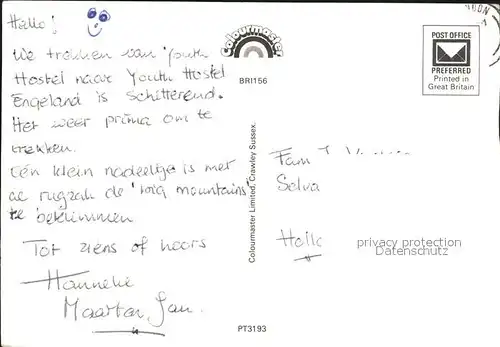 Hallo!
We trekken van Youth
Hostel naar Youth Hostel
Engeland is Schitterend.
Het weer prima om te
trekken.
Eén klein nadeeltje is met
de rugzak de 'big mountains'
te beklimmen
Tot ziens of hoors
Hanneke
Maarten Jan.
Colourmaster
BRI156
Colourmaster Limited, Crawley Sussex.
PT3193
POST OFFICE
PREFERRED
Printed in
Great Britain
Fam
Selva
privacy protection
Datenschutz